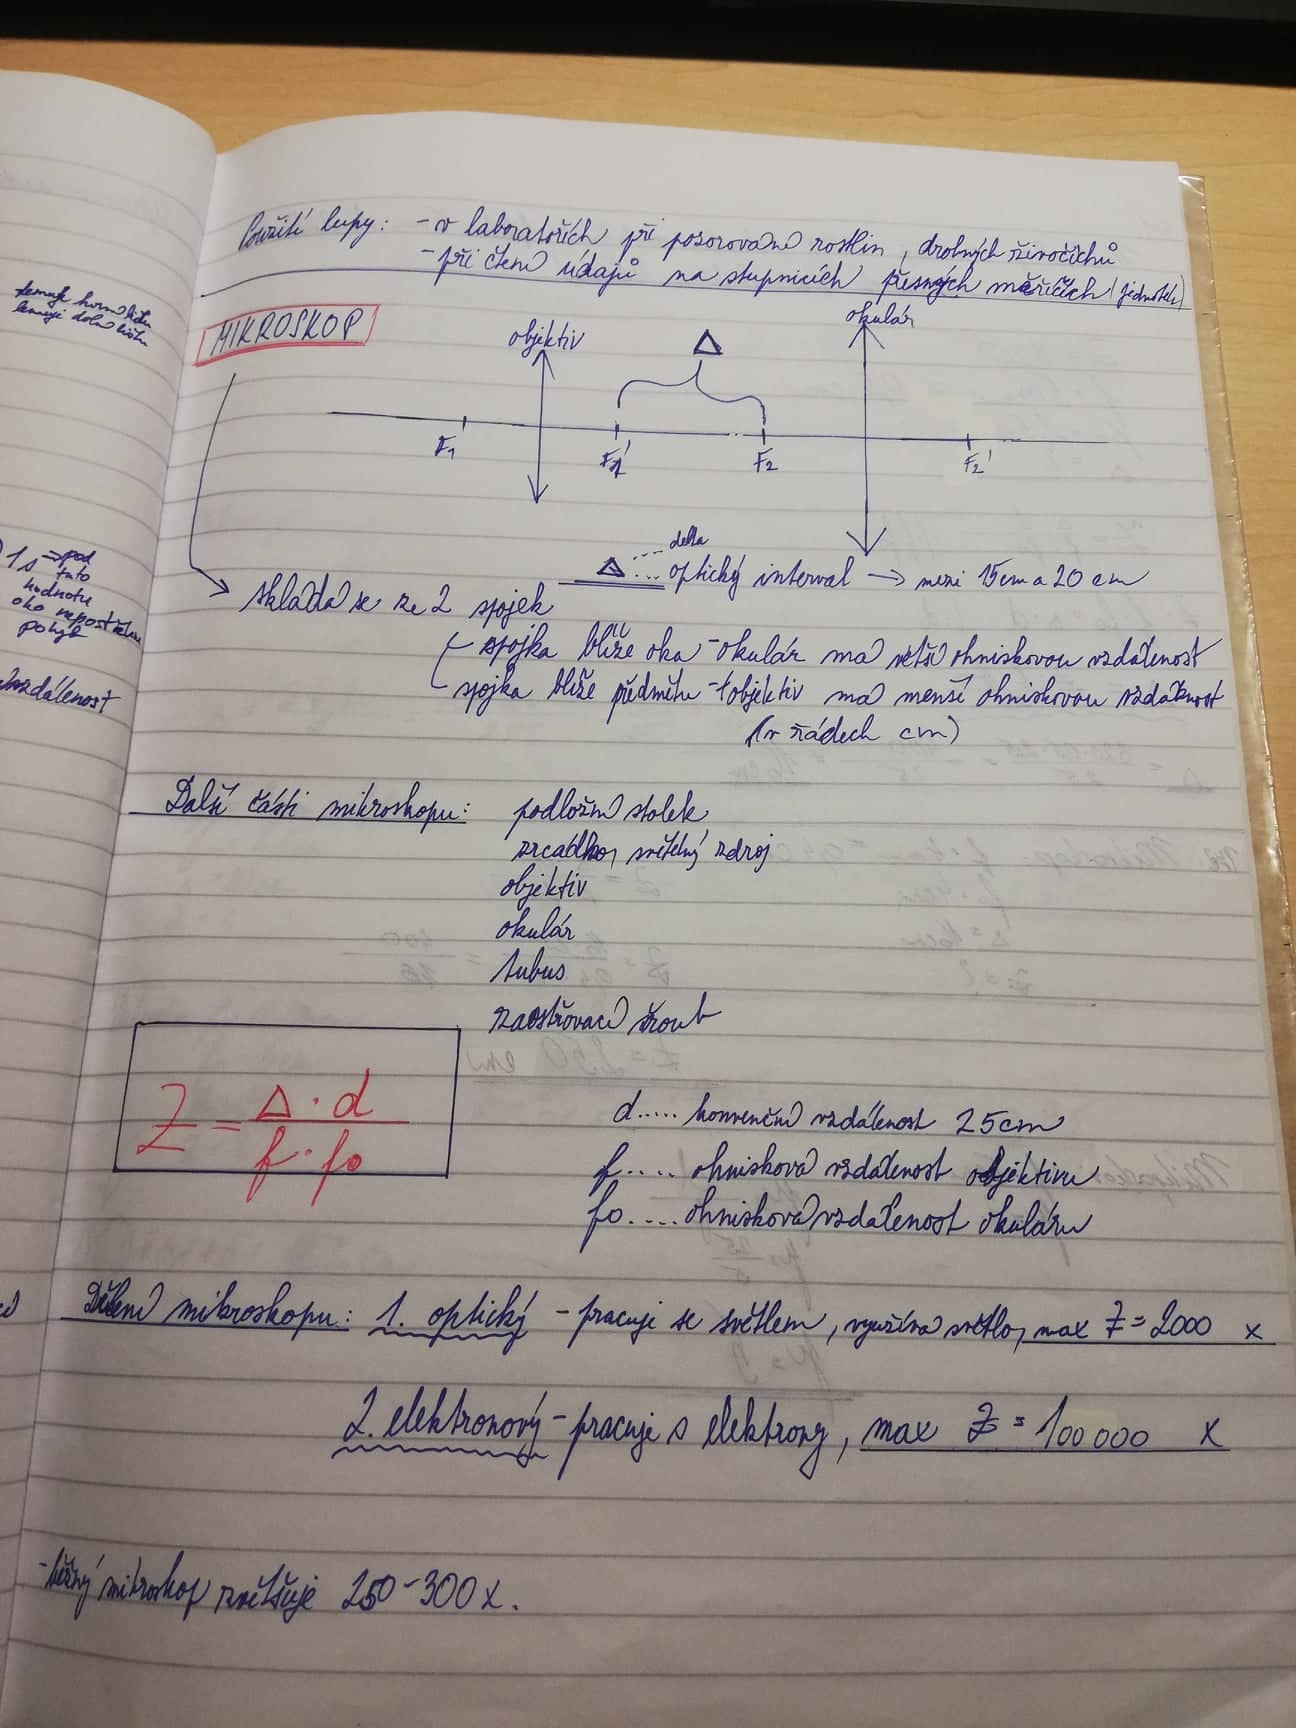 Použití lupy: - v laboratořích při pozorování rostlin, drobných živočichů
- při čtení údajů na stupnicích přesných měřičích (jednotek)
MIKROSKOP
objektiv
Δ
okulár
F1
F1'
F2
F2'
delta
Δ ... optický interval → mezi 15cm a 20 cm
skládá se ze 2 spojek
spojka blíže oka - okulár má větší ohniskovou vzdálenost
spojka blíže předmětu - objektiv má menší ohniskovou vzdálenost
(v řádech cm)
Další části mikroskopu: podložní stolek
zrcádko, světelný zdroj
objektiv
okulár
tubus
zaostřovací šroub
Z = Δ · d / f · fo
d ..... konvenční vzdálenost 25cm
f ..... ohnisková vzdálenost objektivu
fo ..... ohnisková vzdálenost okuláru
Dělení mikroskopu: 1. optický - pracuje se světlem, využívá světlo, max Z = 2000 x
2. elektronový - pracuje s elektrony, max Z = 100 000 x
- běžný mikroskop zvětšuje 250-300 x.
1 s → pod
tuto
hodnotu
oko nepostřehne
pohyb
vzdálenost